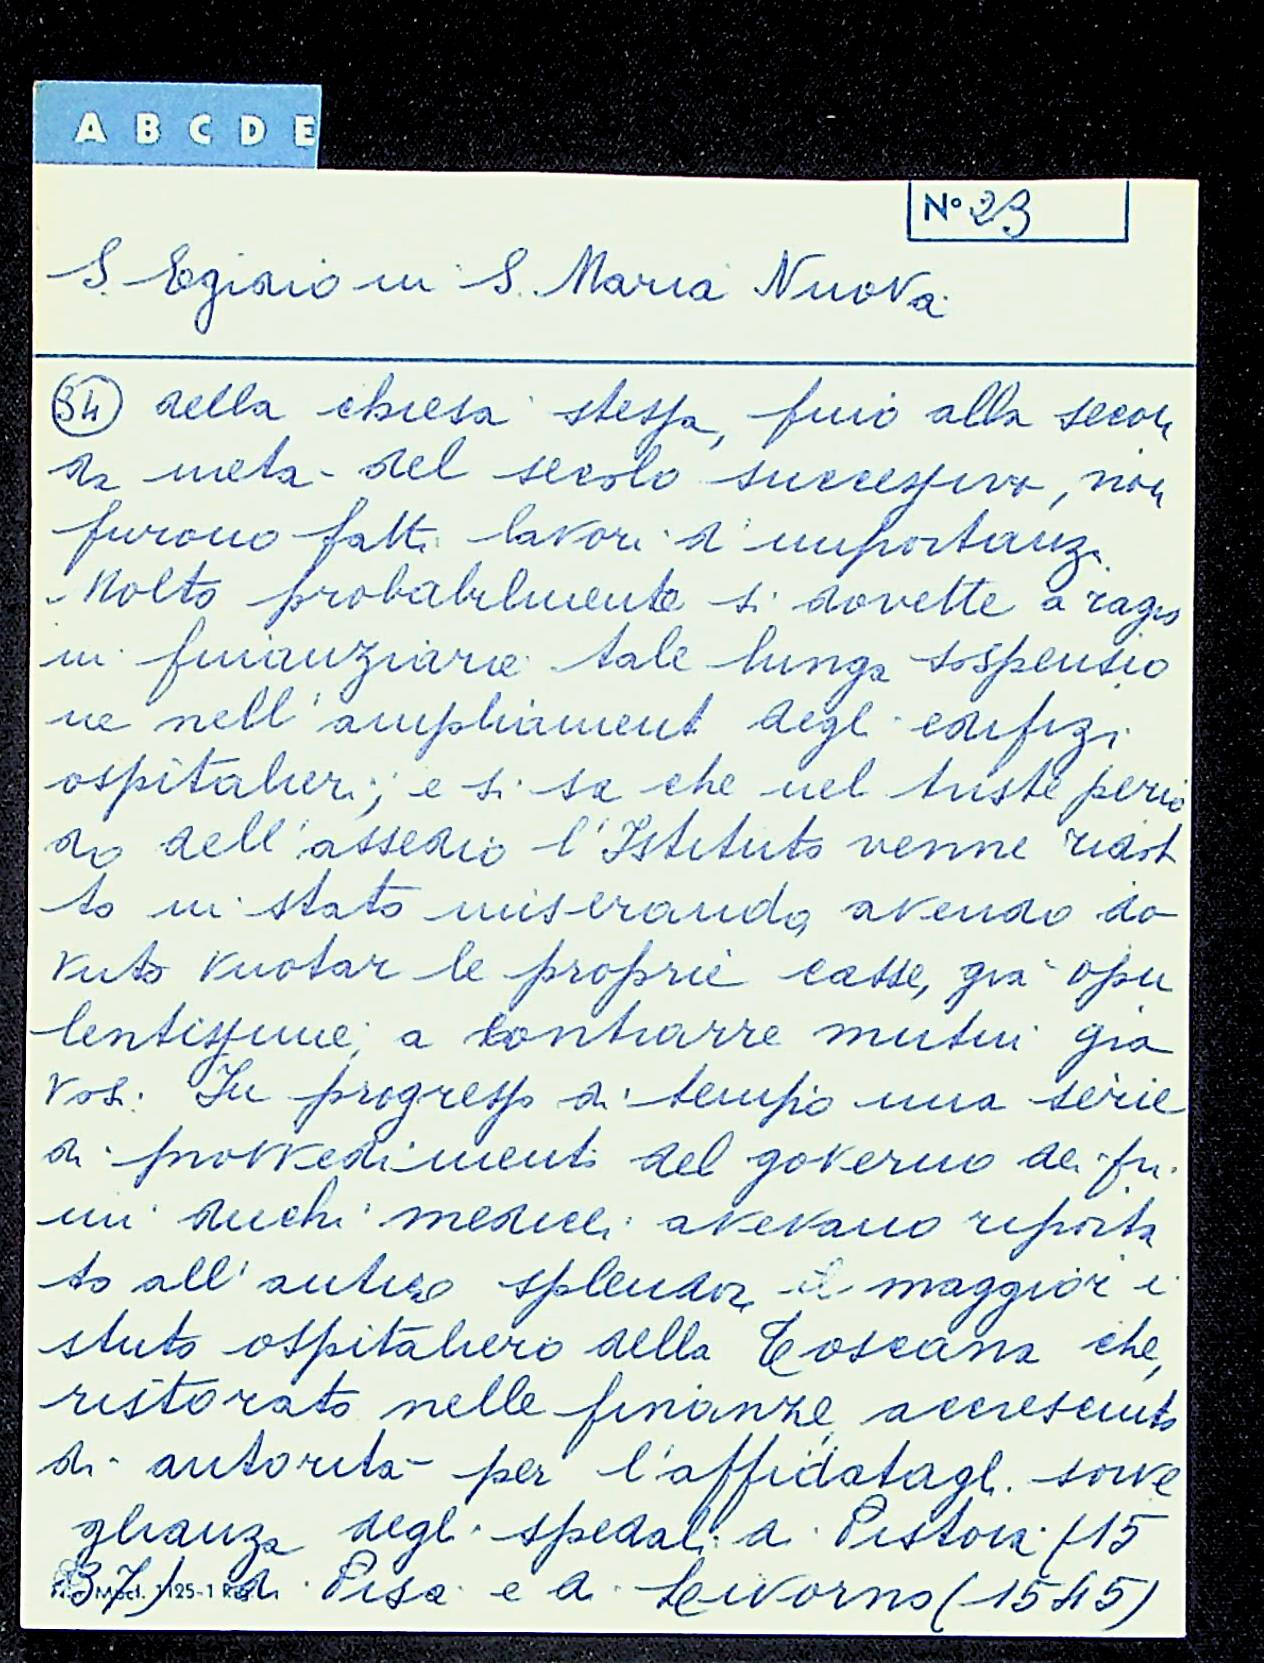 A B C D E
N° 23
S. Egidio in S. Maria Nuova
34 della chiesa stessa, fino alla secon
da metà del secolo successivo, non
furono fatti lavori d'importanza.
Molto probabilmente si dovette a ragio
ni finanziarie tale lunga sospensio
ne nell'ampliament degli edifizi
ospitalieri; e si sa che nel triste perio
do dell'assedio l'Istituto venne ridot
to in stato miserando, avendo do
vuto vuotar le proprie casse, già opu
lentissime, a contrarre mutui gra
vosi. In progresso di tempo una serie
di provvedimenti del governo dei pri
mi duchi medicei avevano riporta
to all'antico splendor il maggior i
stituto ospitaliero della Toscana che,
ristorato nelle finanze, accresciuto
di autorità per l'affidatagli sorve
glianza degli spedali di Pistoia (15
37) di Pisa e di Livorno (1545)
Mod. 1125-1